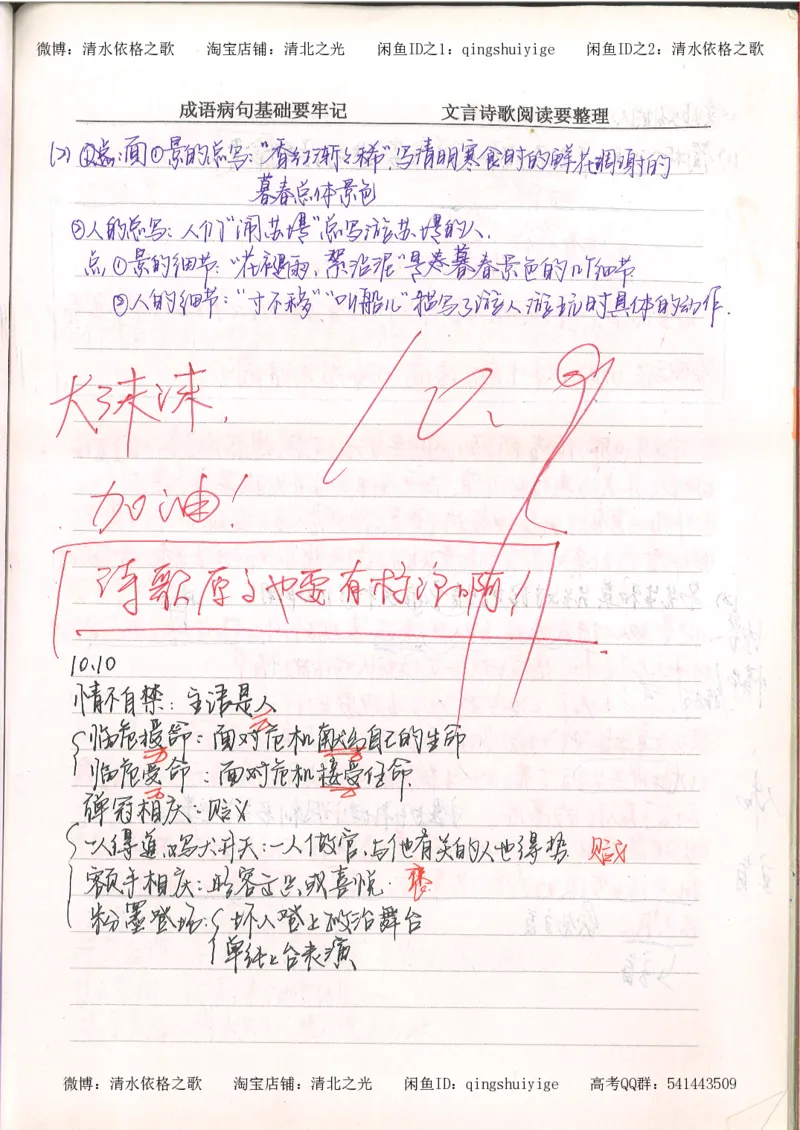 微博：清水依格之歌 淘宝店铺：清北之光 闲鱼ID之1：qingshuiyige 闲鱼ID之2：清水依格之歌
成语病句基础要牢记 文言诗歌阅读要整理
(2) 面①景的总写："香红渐稀"，写清明寒食时的鲜花凋谢的
暮春总体景色
②人的总写：人们"闹苏堤"总写游苏堤的人.
点①景的细节："花褪雨，絮沾泥"是暮春景色的几个细节
②人的细节："寸不移""叫船儿"描写了游人游玩时具体的动作.
加油！
诗歌 也要有 啊！
10.10
情不自禁：主语是人
临危授命：面对危机献出自己的生命
临危受命：面对危机接受任命
弹冠相庆：贬义
一人得道，鸡犬升天：一人做官，与他有关的人也得势 贬义
额手相庆：形容 或喜悦. 褒
粉墨登场：坏人登上政治舞台
单纯上台表演
微博：清水依格之歌 淘宝店铺：清北之光 闲鱼ID：qingshuiyige 高考QQ群：541443509